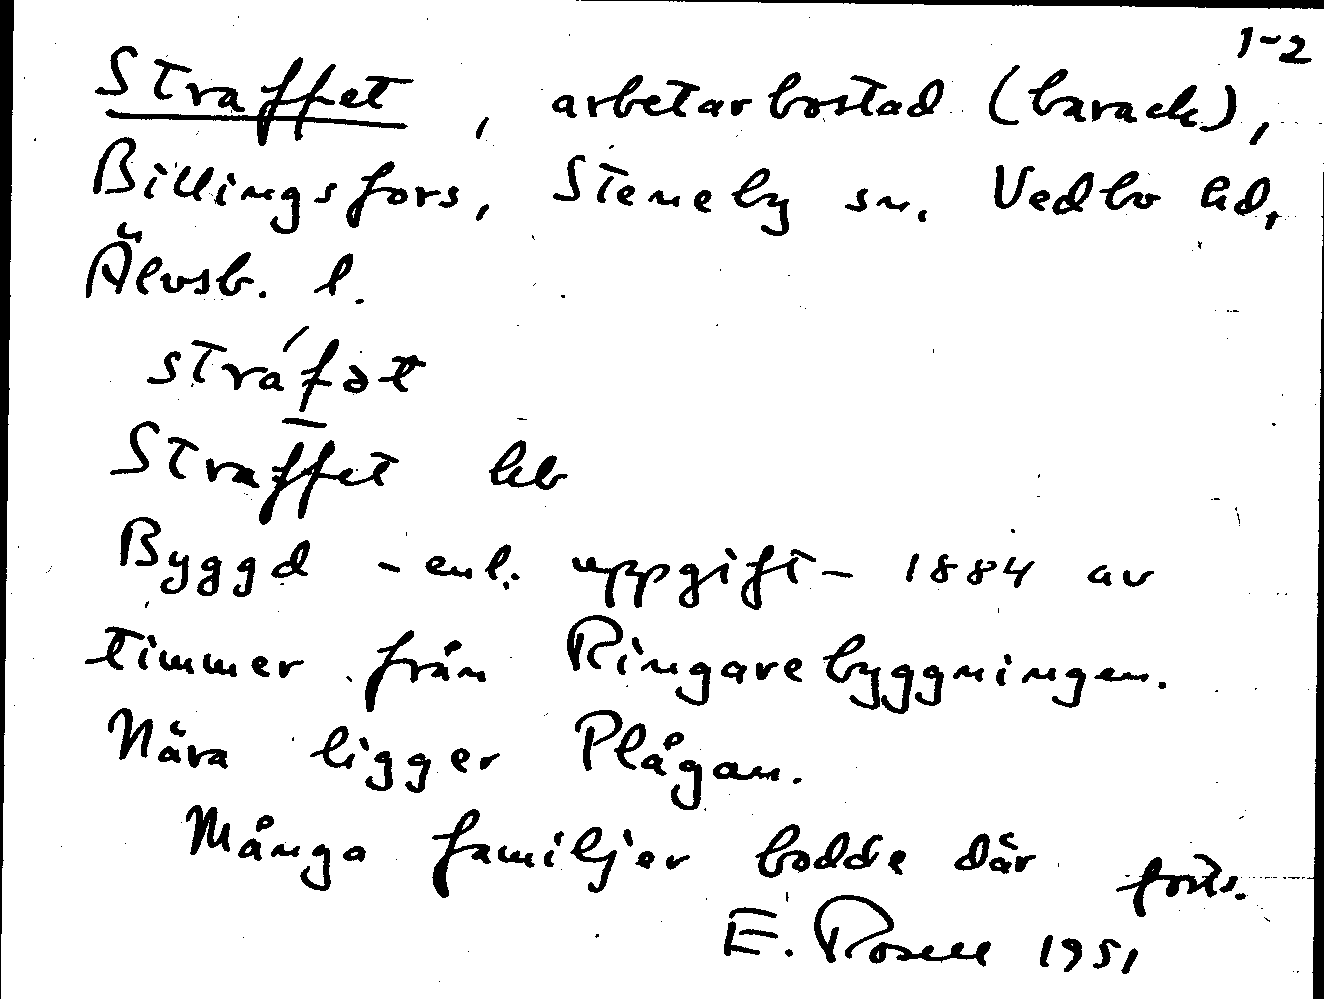 1-2
Straffet, arbetarbostad (barack),
Billingsfors, Steneby sn. Vedbo hd,
Älvsb. l.
stráf̲ət
Straffet hb
Byggd - enl. uppgift - 1884 av
timmer från Ringarebyggningen.
Nära ligger Plågan.
Många familjer bodde där forts.
E. Rosell 1951